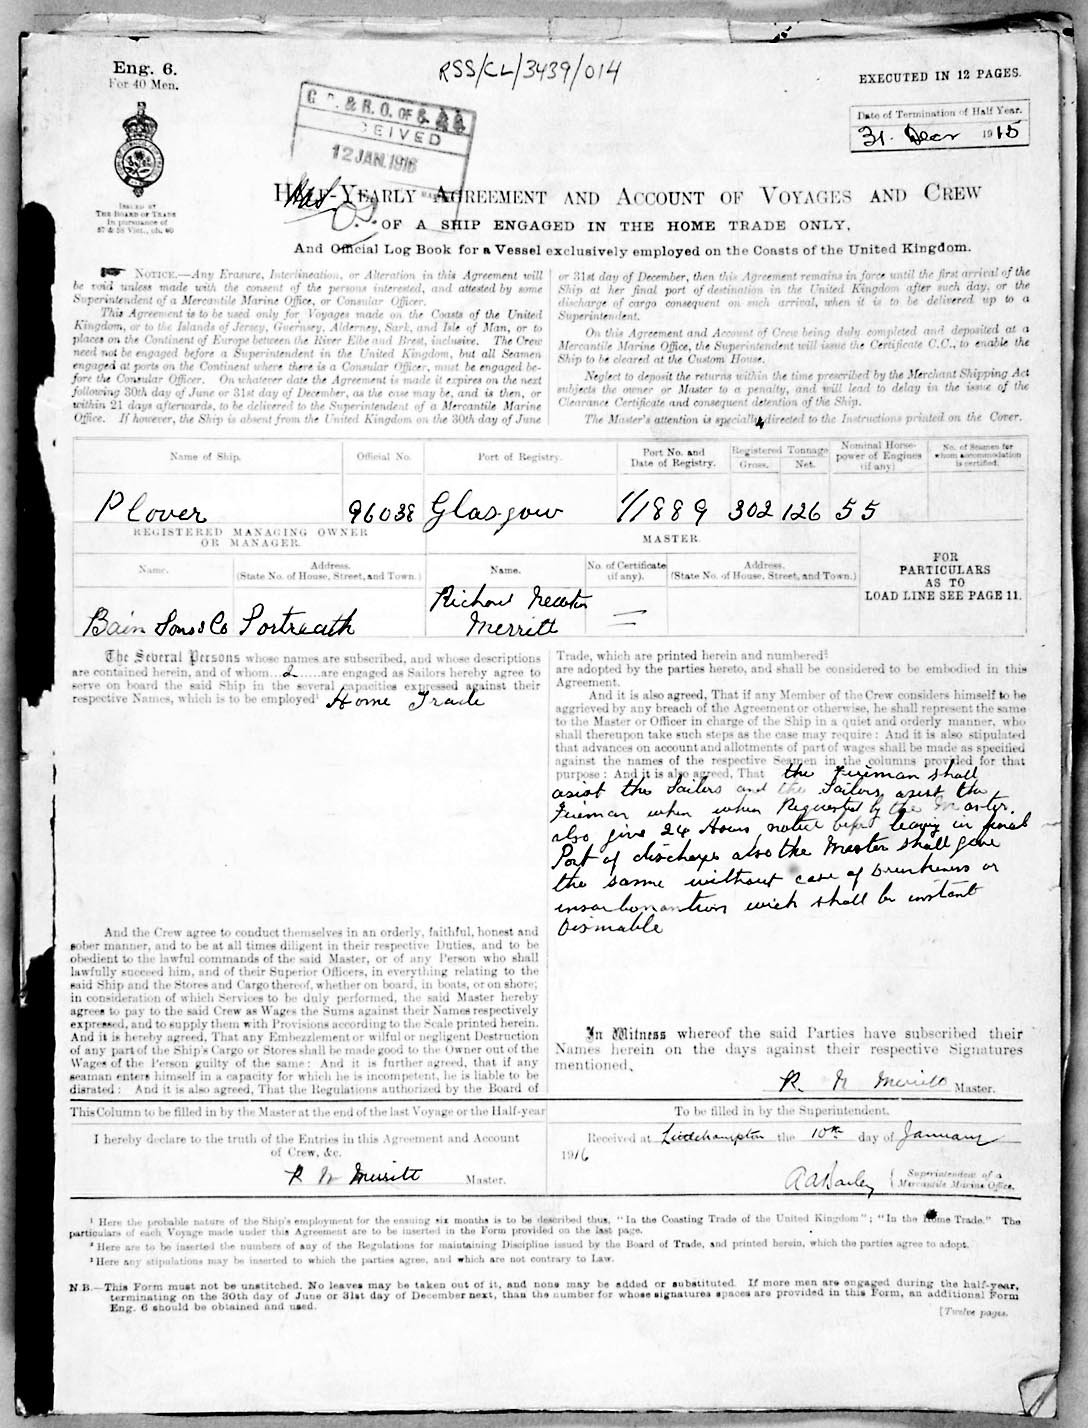 Eng. 6.
For 40 Men.
RSS/CL/3439/014
EXECUTED IN 12 PAGES.
Date of Termination of Half Year.
31. Decr 1915
RECEIVED
12 JAN. 1916
ISSUED BY
THE BOARD OF TRADE
In pursuance of
57 & 58 Vict., ch. 60
HALF-YEARLY AGREEMENT AND ACCOUNT OF VOYAGES AND CREW
OF A SHIP ENGAGED IN THE HOME TRADE ONLY,
And Official Log Book for a Vessel exclusively employed on the Coasts of the United Kingdom.
NOTICE.—Any Erasure, Interlineation, or Alteration in this Agreement will
be void unless made with the consent of the persons interested, and attested by some
Superintendent of a Mercantile Marine Office, or Consular Officer.
This Agreement is to be used only for Voyages made on the Coasts of the United
Kingdom, or to the Islands of Jersey, Guernsey, Alderney, Sark, and Isle of Man, or to
places on the Continent of Europe between the River Elbe and Brest, inclusive. The Crew
need not be engaged before a Superintendent in the United Kingdom, but all Seamen
engaged at ports on the Continent where there is a Consular Officer, must be engaged be-
fore the Consular Officer. On whatever date the Agreement is made it expires on the next
following 30th day of June or 31st day of December, as the case may be, and is then, or
within 21 days afterwards, to be delivered to the Superintendent of a Mercantile Marine
Office. If however, the Ship is absent from the United Kingdom on the 30th day of June
or 31st day of December, then this Agreement remains in force until the first arrival of the
Ship at her final port of destination in the United Kingdom after such day, or the
discharge of cargo consequent on such arrival, when it is to be delivered up to a
Superintendent.
On this Agreement and Account of Crew being duly completed and deposited at a
Mercantile Marine Office, the Superintendent will issue the Certificate C.C., to enable the
Ship to be cleared at the Custom House.
Neglect to deposit the returns within the time prescribed by the Merchant Shipping Act
subjects the owner or Master to a penalty, and will lead to delay in the issue of the
Clearance Certificate and consequent detention of the Ship.
The Master's attention is specially directed to the Instructions printed on the Cover.
Name of Ship. Official No. Port of Registry. Port No. and Date of Registry. Registered Tonnage Gross. Net. Nominal Horse-power of Engines (if any) No. of Seamen for whom accommodation is certified.
Plover 96038 Glasgow 1/1889 302 126 55
REGISTERED MANAGING OWNER
OR MANAGER.
MASTER.
Name. Address. (State No. of House, Street, and Town.) Name. No. of Certificate (if any). Address. (State No. of House, Street, and Town.)
FOR
PARTICULARS
AS TO
LOAD LINE SEE PAGE 11.
Bain Sons & Co Portreath Richard Newton
Merritt
The Several Persons whose names are subscribed, and whose descriptions
are contained herein, and of whom 2 are engaged as Sailors hereby agree to
serve on board the said Ship in the several capacities expressed against their
respective Names, which is to be employed¹ Home Trade
And the Crew agree to conduct themselves in an orderly, faithful, honest and
sober manner, and to be at all times diligent in their respective Duties, and to be
obedient to the lawful commands of the said Master, or of any Person who shall
lawfully succeed him, and of their Superior Officers, in everything relating to the
said Ship and the Stores and Cargo thereof, whether on board, in boats, or on shore;
in consideration of which Services to be duly performed, the said Master hereby
agrees to pay to the said Crew as Wages the Sums against their Names respectively
expressed, and to supply them with Provisions according to the Scale printed herein.
And it is hereby agreed, That any Embezzlement or wilful or negligent Destruction
of any part of the Ship's Cargo or Stores shall be made good to the Owner out of the
Wages of the Person guilty of the same: And it is further agreed, that if any
seaman enters himself in a capacity for which he is incompetent, he is liable to be
disrated: And it is also agreed, That the Regulations authorized by the Board of
Trade, which are printed herein and numbered²
are adopted by the parties hereto, and shall be considered to be embodied in this
Agreement.
And it is also agreed, That if any Member of the Crew considers himself to be
aggrieved by any breach of the Agreement or otherwise, he shall represent the same
to the Master or Officer in charge of the Ship in a quiet and orderly manner, who
shall thereupon take such steps as the case may require: And it is also stipulated
that advances on account and allotments of part of wages shall be made as specified
against the names of the respective Seamen in the columns provided for that
purpose: And it is also agreed, That the Fireman shall
asist the Sailors and the Sailors asist the
Fireman when when Requested by the Master.
also give 24 Hours notice before leaving in final
Port of discharge also the Master shall give
the same without case of Drunkeness or
wich shall be instant
Dismable
In Witness whereof the said Parties have subscribed their
Names herein on the days against their respective Signatures
mentioned.
R. N. Merritt Master.
This Column to be filled in by the Master at the end of the last Voyage or the Half-year
I hereby declare to the truth of the Entries in this Agreement and Account
of Crew, &c.
R N Merritt Master.
To be filled in by the Superintendent.
Received at Littlehampton the 10th day of January
1916
A A Bailey Superintendent of a
Mercantile Marine Office.
¹ Here the probable nature of the Ship's employment for the ensuing six months is to be described thus, "In the Coasting Trade of the United Kingdom"; "In the Home Trade." The
particulars of each Voyage made under this Agreement are to be inserted in the Form provided on the last page.
² Here are to be inserted the numbers of any of the Regulations for maintaining Discipline issued by the Board of Trade, and printed herein, which the parties agree to adopt.
³ Here any stipulations may be inserted to which the parties agree, and which are not contrary to Law.
N.B.—This Form must not be unstitched. No leaves may be taken out of it, and none may be added or substituted. If more men are engaged during the half-year,
terminating on the 30th day of June or 31st day of December next, than the number for whose signatures spaces are provided in this Form, an additional Form
Eng. 6 should be obtained and used.
[Twelve pages.